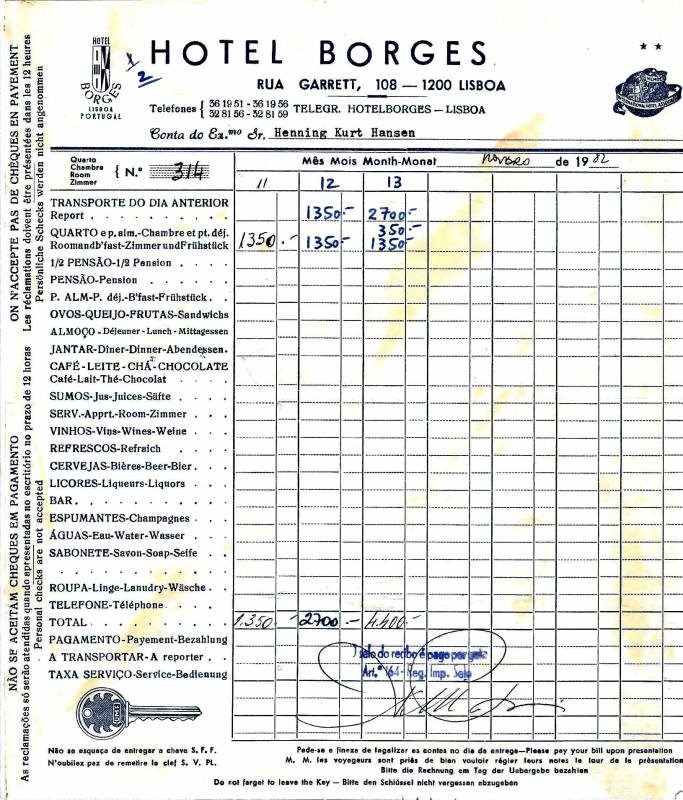 HOTEL
BORGES
LISBOA
PORTUGAL
1/2
HOTEL BORGES
RUA GARRETT, 108 — 1200 LISBOA
Telefones { 36 19 51 - 36 19 56
32 81 56 - 32 81 59 } TELEGR. HOTELBORGES — LISBOA
Conta do Ex.mo Sr. Henning Kurt Hansen
Quarto
Chambre
Room
Zimmer { N.º 314
Mês Mois Month-Monat novbro de 1982
11 12 13
TRANSPORTE DO DIA ANTERIOR
Report . . . . . . . . . 1350.- 2700.-
QUARTO e p. alm.-Chambre et pt. déj. 350.-
Roomandb'fast-ZimmerundFrühstück 1350.- 1350.- 1350.-
1/2 PENSÃO-1/2 Pension . . . .
PENSÃO-Pension . . . . .
P. ALM-P. déj.-B'fast-Frühstück . .
OVOS-QUEIJO-FRUTAS-Sandwichs
ALMOÇO - Déjeuner - Lunch - Mittagessen
JANTAR-Dîner-Dinner-Abendessen.
CAFÉ-LEITE-CHÁ-CHOCOLATE
Café-Lait-Thé-Chocolat . . . .
SUMOS-Jus-Juices-Säfte . . . .
SERV.-Apprt.-Room-Zimmer . . .
VINHOS-Vins-Wines-Weine . . .
REFRESCOS-Refraich . . . .
CERVEJAS-Bières-Beer-Bier . . .
LICORES-Liqueurs-Liquors . . .
BAR . . . . . . . . .
ESPUMANTES-Champagnes . . .
ÁGUAS-Eau-Water-Wasser . . .
SABONETE-Savon-Soap-Seife . . .
ROUPA-Linge-Lanudry-Wäsche . .
TELEFONE-Téléphone . . . .
TOTAL . . . . . . . . 1.350.- 2700.- 4400.-
PAGAMENTO-Payement-Bezahlung
A TRANSPORTAR-A reporter . . .
TAXA SERVIÇO-Service-Bedienung
selo do recibo é pago por guia
Art.º 164 - Reg. Imp. Selo
Não se esqueça de entregar a chave S. F. F.
N'oubilez paz de remetire la clef S. V. PL.
Pede-se a fineza de legalizar as contas no dia da entrega—Please pay your bill upon presentation
M. M. les voyageurs sont priés de bien vouloir régler leurs notes le lour de la présentation
Bitte die Rechnung em Tag der Uebergebe bezahlen
Do not farget to leave the Key — Bitte den Schlüssel nicht vergessen abzugeben
NÃO SE ACEITAM CHEQUES EM PAGAMENTO
ON N'ACCEPTE PAS DE CHÈQUES EN PAYEMENT
As reclamações só serão atendidas quando apresentadas no escritório no prazo de 12 horas
Les réclamations doivent être présentées dans les 12 heures
Personal checks are not accepted
Persönliche Schecks werden nicht angenommen